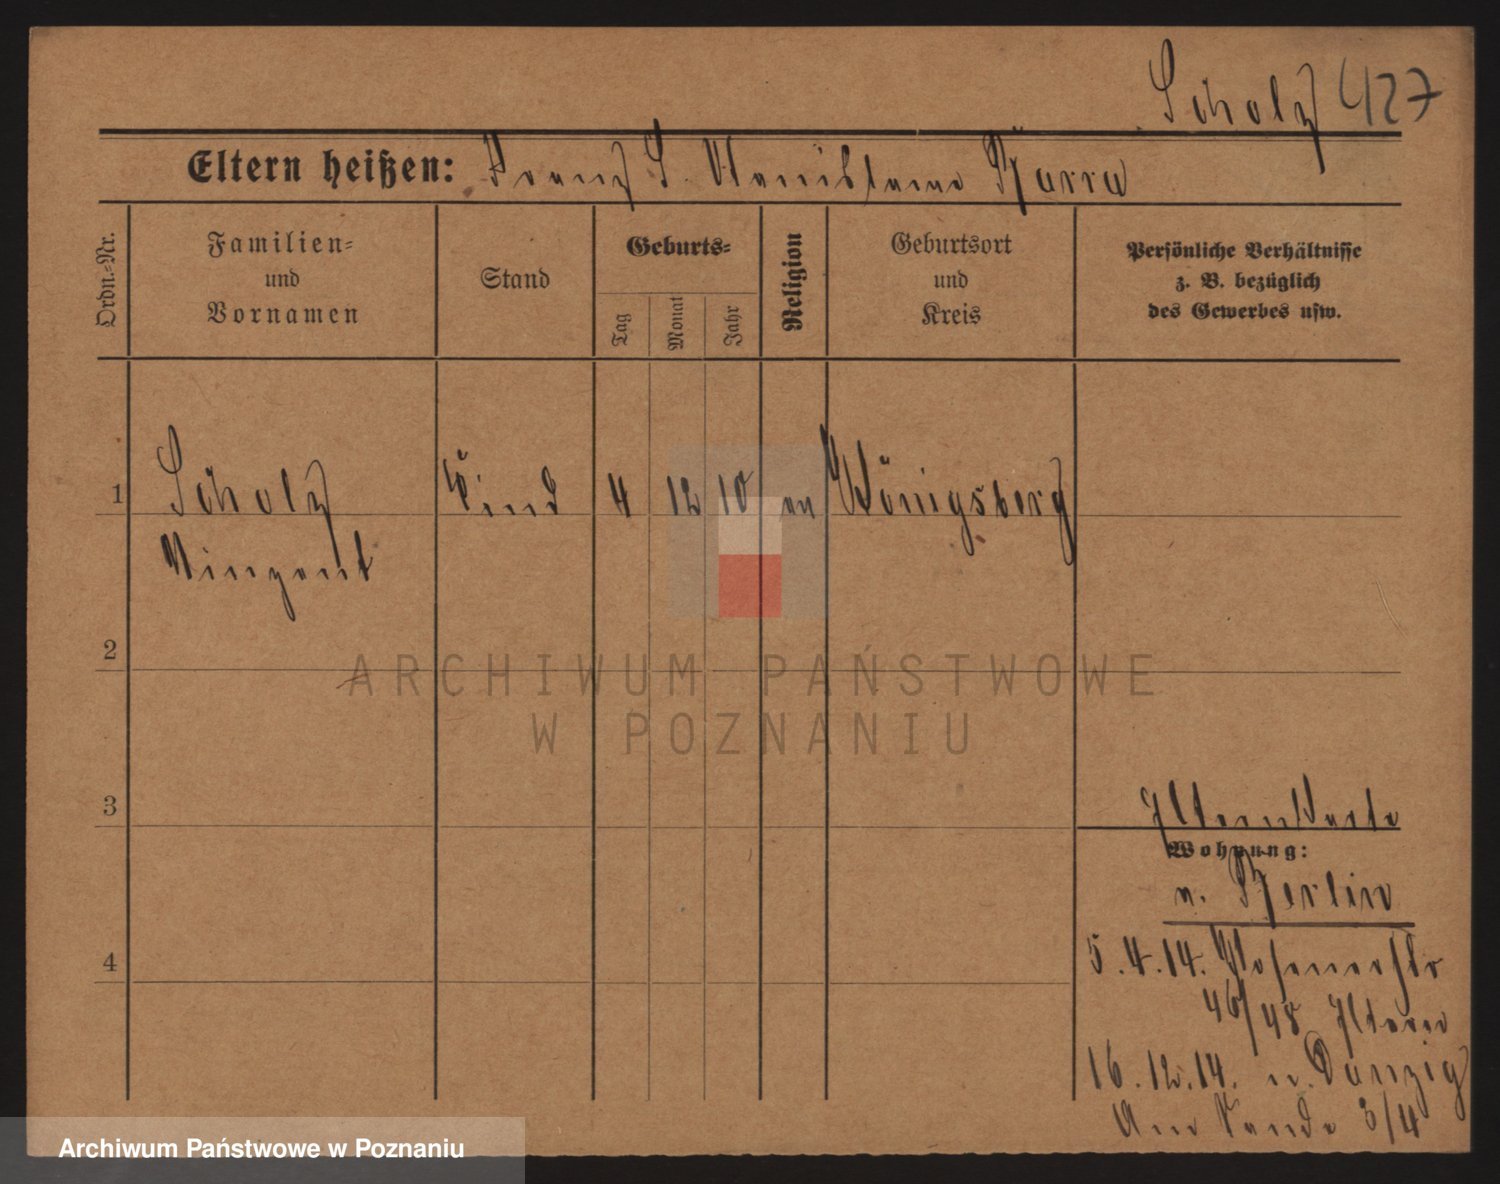 Scholz 427
Eltern heißen: Franz S. Stanislawa Barra
Ordn.-Nr.
Familien-
und
Vornamen
Stand
Geburts-
Tag
Monat
Jahr
Religion
Geburtsort
und
Kreis
Persönliche Verhältnisse
z. B. bezüglich
des Gewerbes usw.
1 Scholz Kind 4 12 10 ev Königsberg
Vinzent
2
3
4
Elternkarte
Wohnung:
n. Berlin
5.4.14. Posenerstr
46/48 Eltern
16.12.14. n. Danzig
Am Sande 3/4
ARCHIWUM PAŃSTWOWE
W POZNANIU
Archiwum Państwowe w Poznaniu